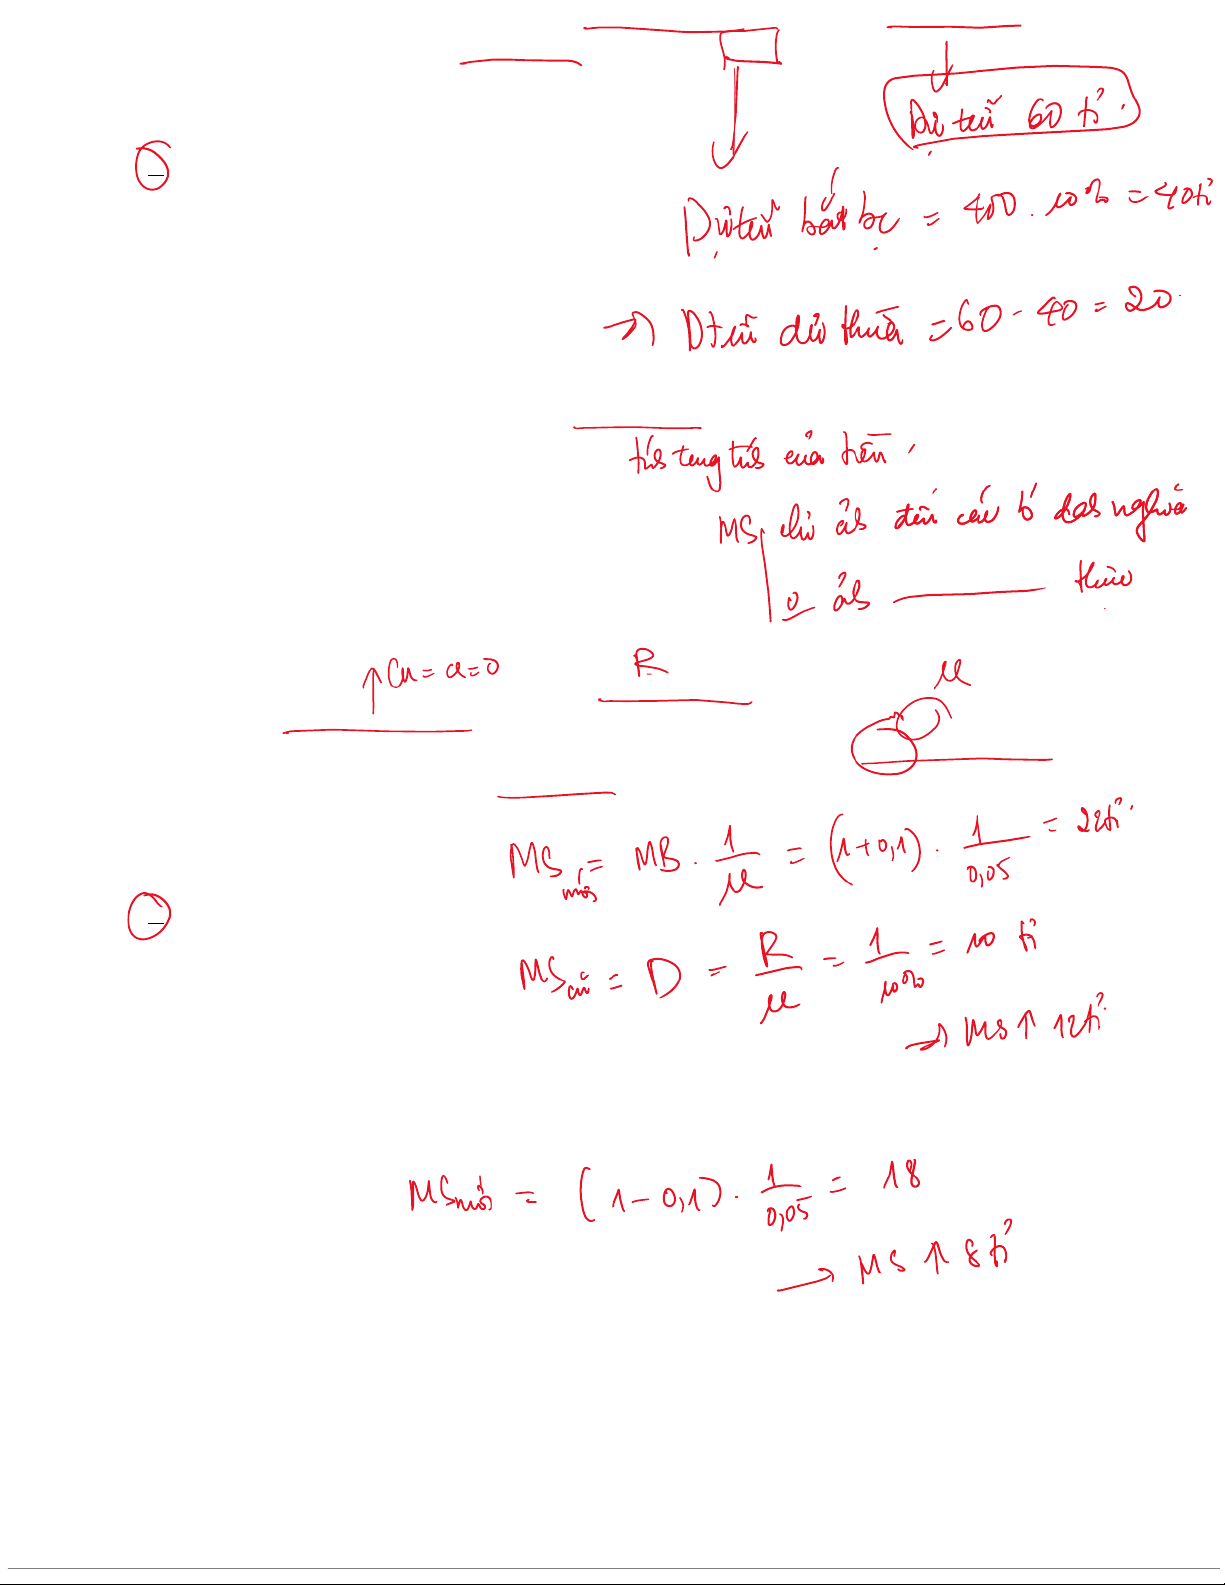 Dự trữ 60 tỉ.
Dự trữ bắt bc = 400 . 10% = 40 tỉ
→ Dtrữ dư thừa = 60 - 40 = 20.
của tiền
MS chỉ ảh đến các b' dah nghĩa
0 ảh ——— thực
↑ Cu = a = 0
R
u
MS mới = MB . 1/u = (1+0,1) . 1/0,05 = 22 tỉ.
MS cũ = D = R/u = 1/10% = 10 tỉ
→ MS ↑ 12 tỉ.
MS mới = (1-0,1) . 1/0,05 = 18
→ MS ↑ 8 tỉ